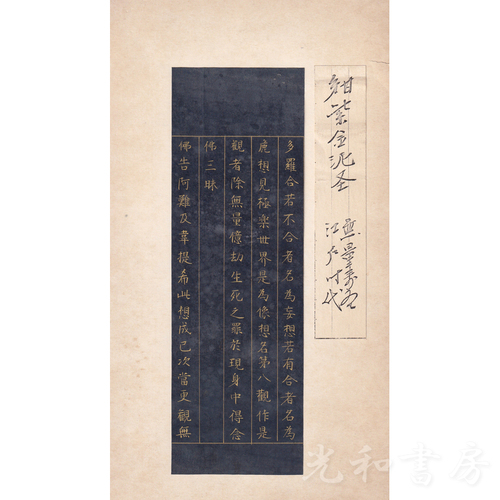 紺紫金泥圣
江戸时代
多羅合若不合者名為妄想若有合者名為
麁想見極樂世界是為像想名第八觀作是
觀者除無量億劫生死之罪於現身中得念
佛三昧
佛告阿難及韋提希此想成已次當更觀無
光和書房